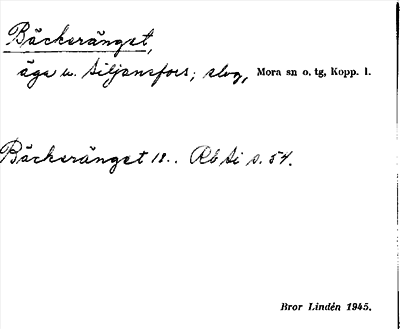 Bäckeränget,
äga u. Siljansfors; skog, Mora sn o. tg, Kopp. l.
Bäckeränget 18.. Rb Si s. 54.
Bror Lindén 1945.